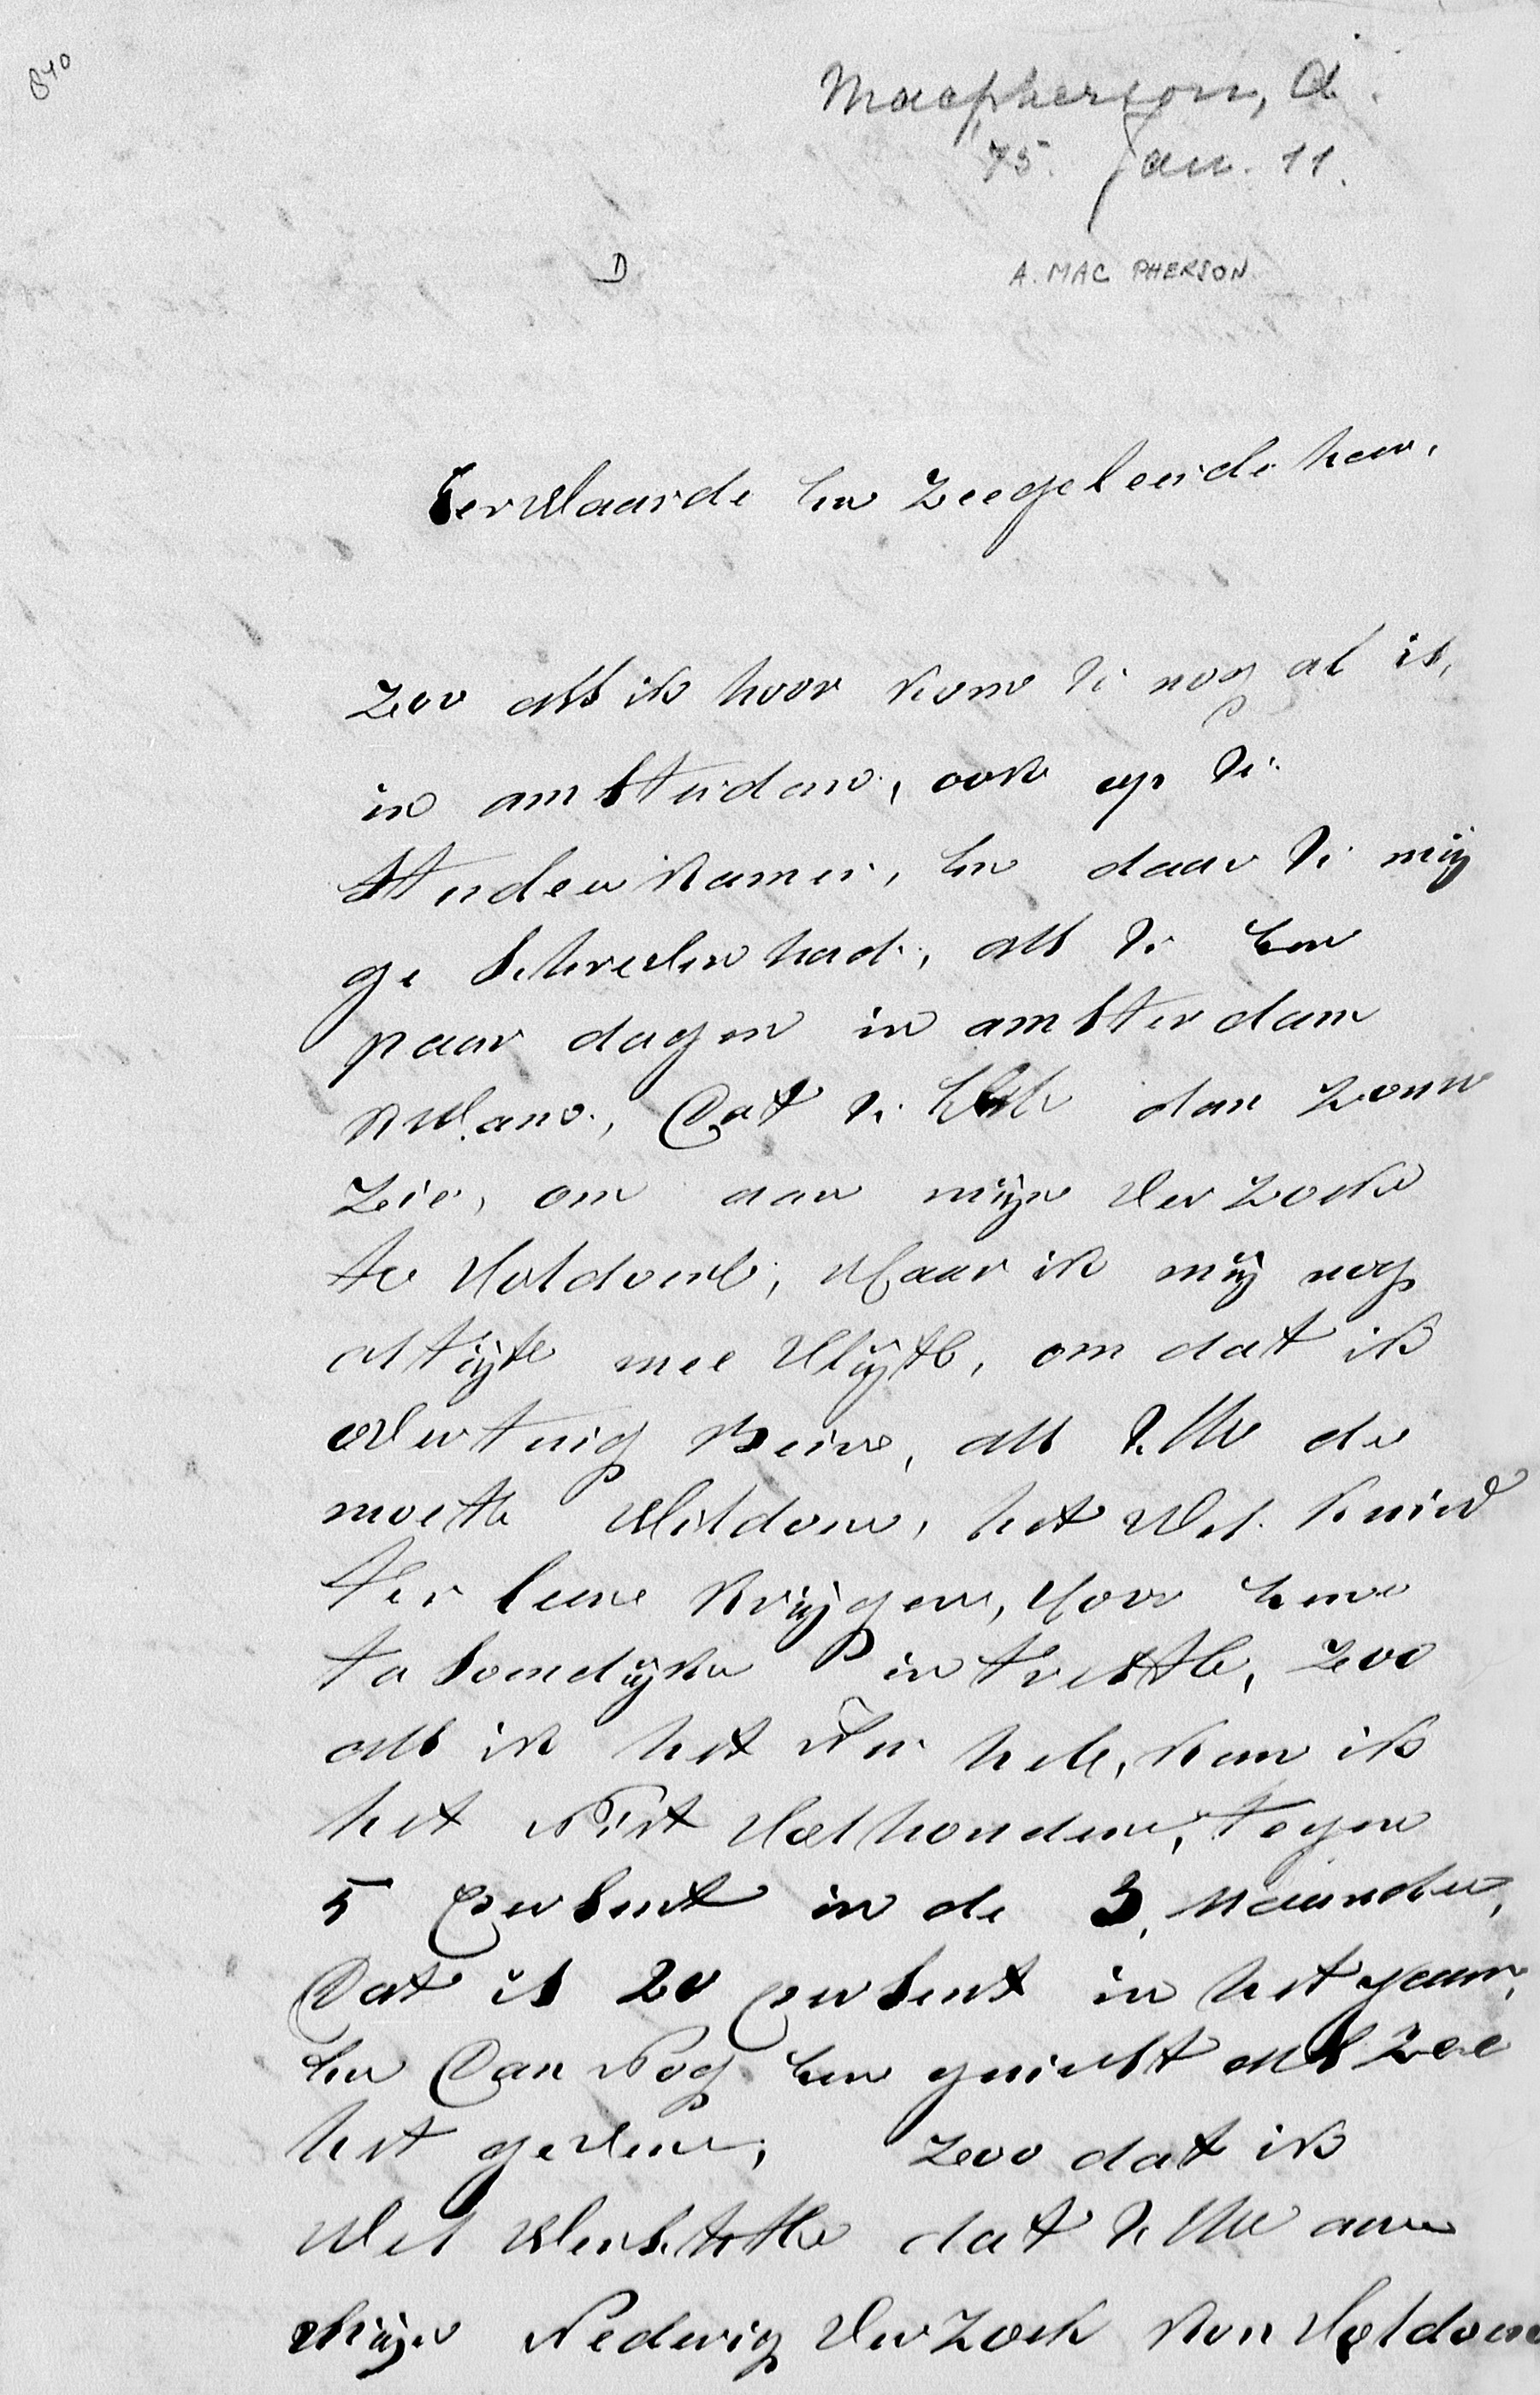 840
Macpherson, A.
75. Jan. 11.
D
A. MAC PHERSON
Eerwaarde en Zeegeleerde heer.
Zoo als ik hoor kom U nog al is,
in amsterdam, ook op U
Studeer kamer, en daar U mij
ge schreven had, als U een
paar dagen in amsterdam
kwam, Dat U dan zouw
zien, om aan mijn ver zoek
te voldoene, waar ik mij nog
altijt mee vlijt, om dat ik
over tuig bein, als U de
moete wildoen, het wel kuind
ter leene krijgen, voor eene
intreste, zoo
als ik het nu heb, kan ik
het Niet vol houden, tegen
5 persent in de 3 maanden,
Dat is 20 persent in het jaar,
en Dan Nog een guinst als zee
het geeven, zoo dat ik
wel dat U aan
mijn Nederig verzoek kon voldoen